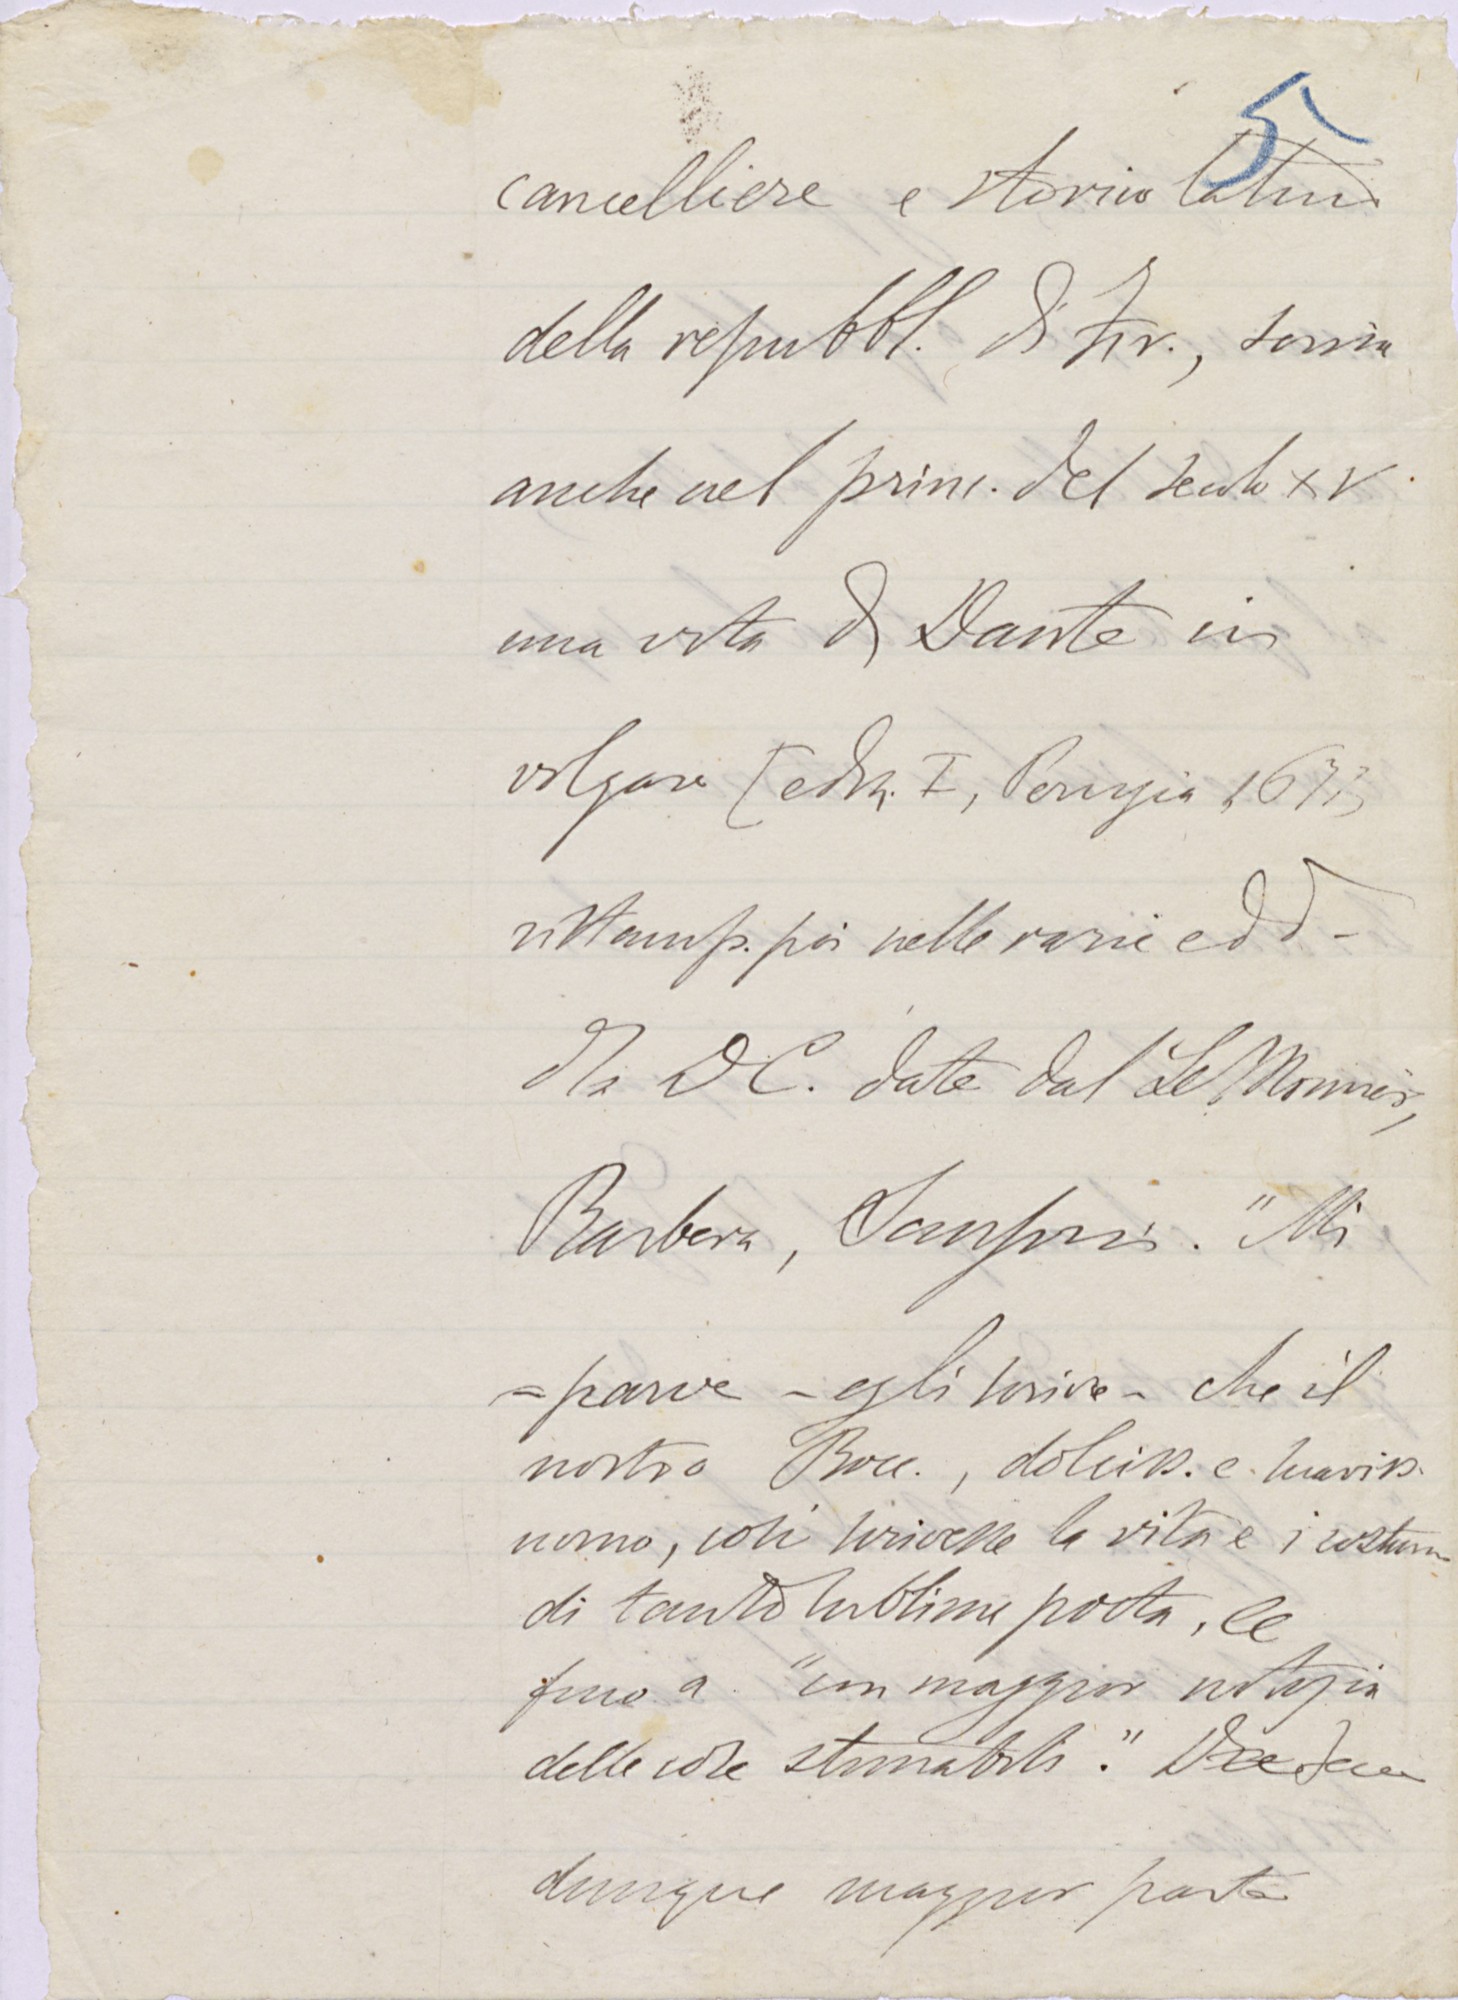 5
cancelliere e storico latino
della repubbl. di Fir., scriss
anche nel princ. del secolo XV
una vita di Dante in
volgare [ediz. I, Perugia 1671,
ristamp. poi nelle varie edd -
d la D C. date dal Le Monnier,
Barbera, Sansoni. "Mi
=parve - egli scrive - che il
nostro Bocc., dolciss. e suaviss.
uomo, così scrivesse la vita e i costumi
di tanto sublime poeta, ec
fino a "con maggior notizia
delle cose stimabili."
dunque maggior parte